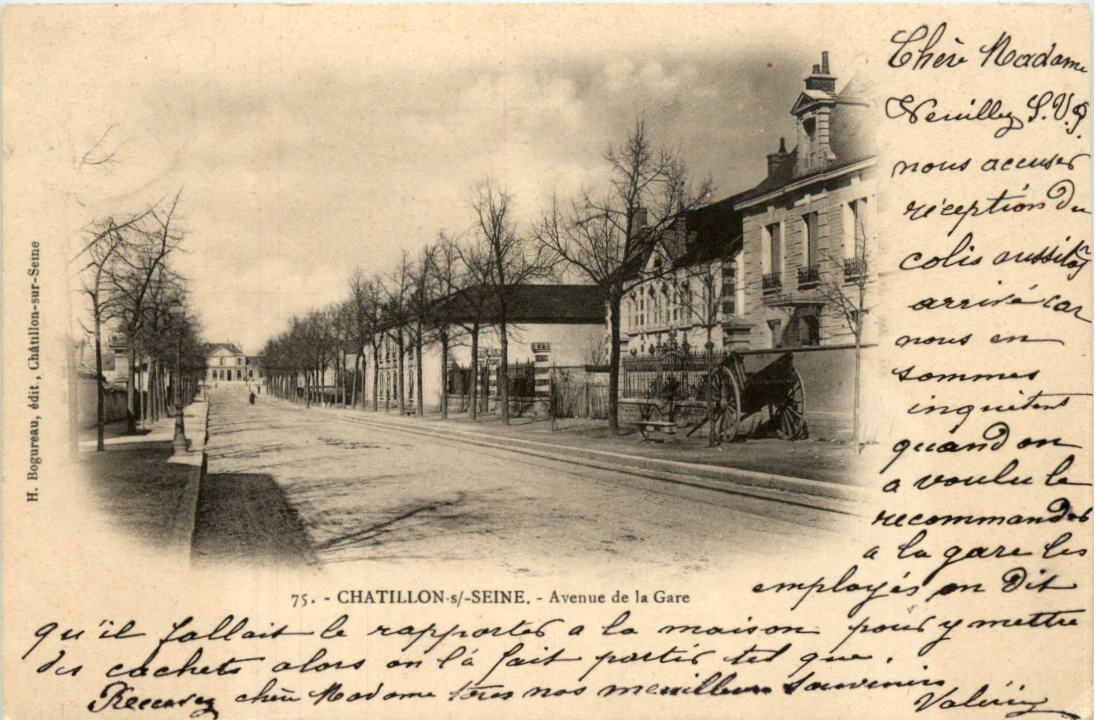 Chère Madame
Veuillez S.V.P.
nous accuser
réception du
colis aussitôt
arrivé car
nous en
sommes
inquièters
quand on
a voulu le
recommander
a la gare les
employés on dit
qu'il fallait le rapporter a la maison pour y mettre
des cachets alors on l'à fait partir tel que.
Recevez chère Madame tous nos meilleurs souvenirs
Valérie
H. Bogureau, édit., Châtillon-sur-Seine
75. - CHATILLON-s/-SEINE. - Avenue de la Gare